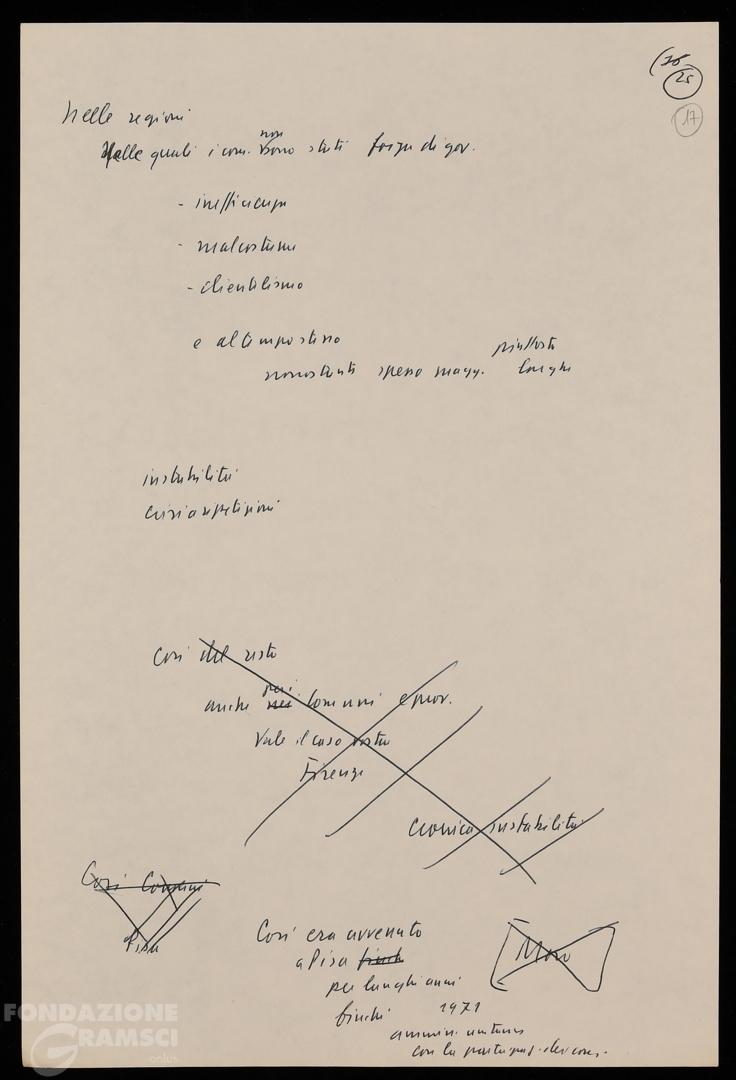 (16
25
17
Nelle regioni
Nelle quali i com. non sono stati forza di gov.
- inefficienza
- malcostume
- clientelismo
e al tempo stesso
nonostanti spesso magg. piuttosto
larghe
instabilità
crisi a ripetizioni
Così del resto
anche nei per i Comuni e prov.
Vale il caso vostro
Firenze
Cronica instabilità
Così Comuni
Pisa
Così era avvenuto
a Pisa finché
per lunghi anni
finché 1971
ammin. unitaria
con la partecipaz. dei com.
Moro
FONDAZIONE
GRAMSCI
onlus